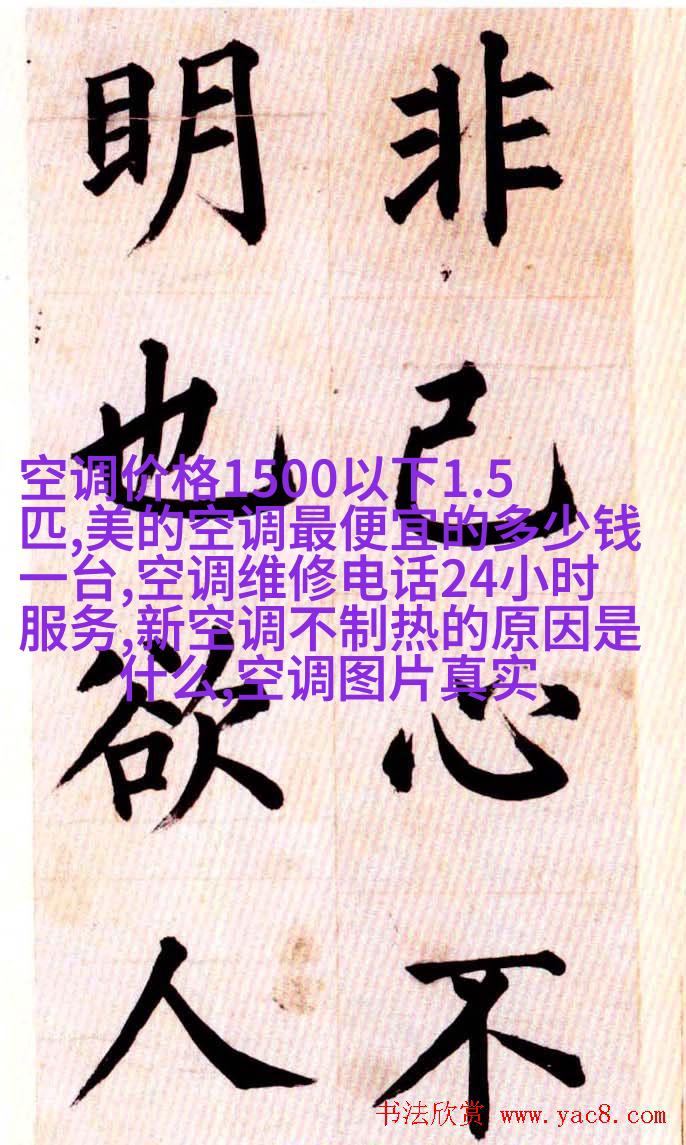 非己心不
明也欲人
空调价格1500以下1.5
匹,美的空调最便宜的多少钱
一台,空调维修电话24小时
服务,新空调不制热的原因是
什么,空调图片真实
书法欣赏 www.yac8.com